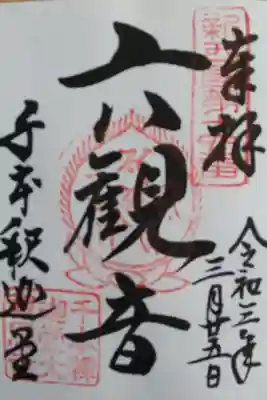 奉拝
六観音
千本釈迦堂
令和二年
三月廿五日